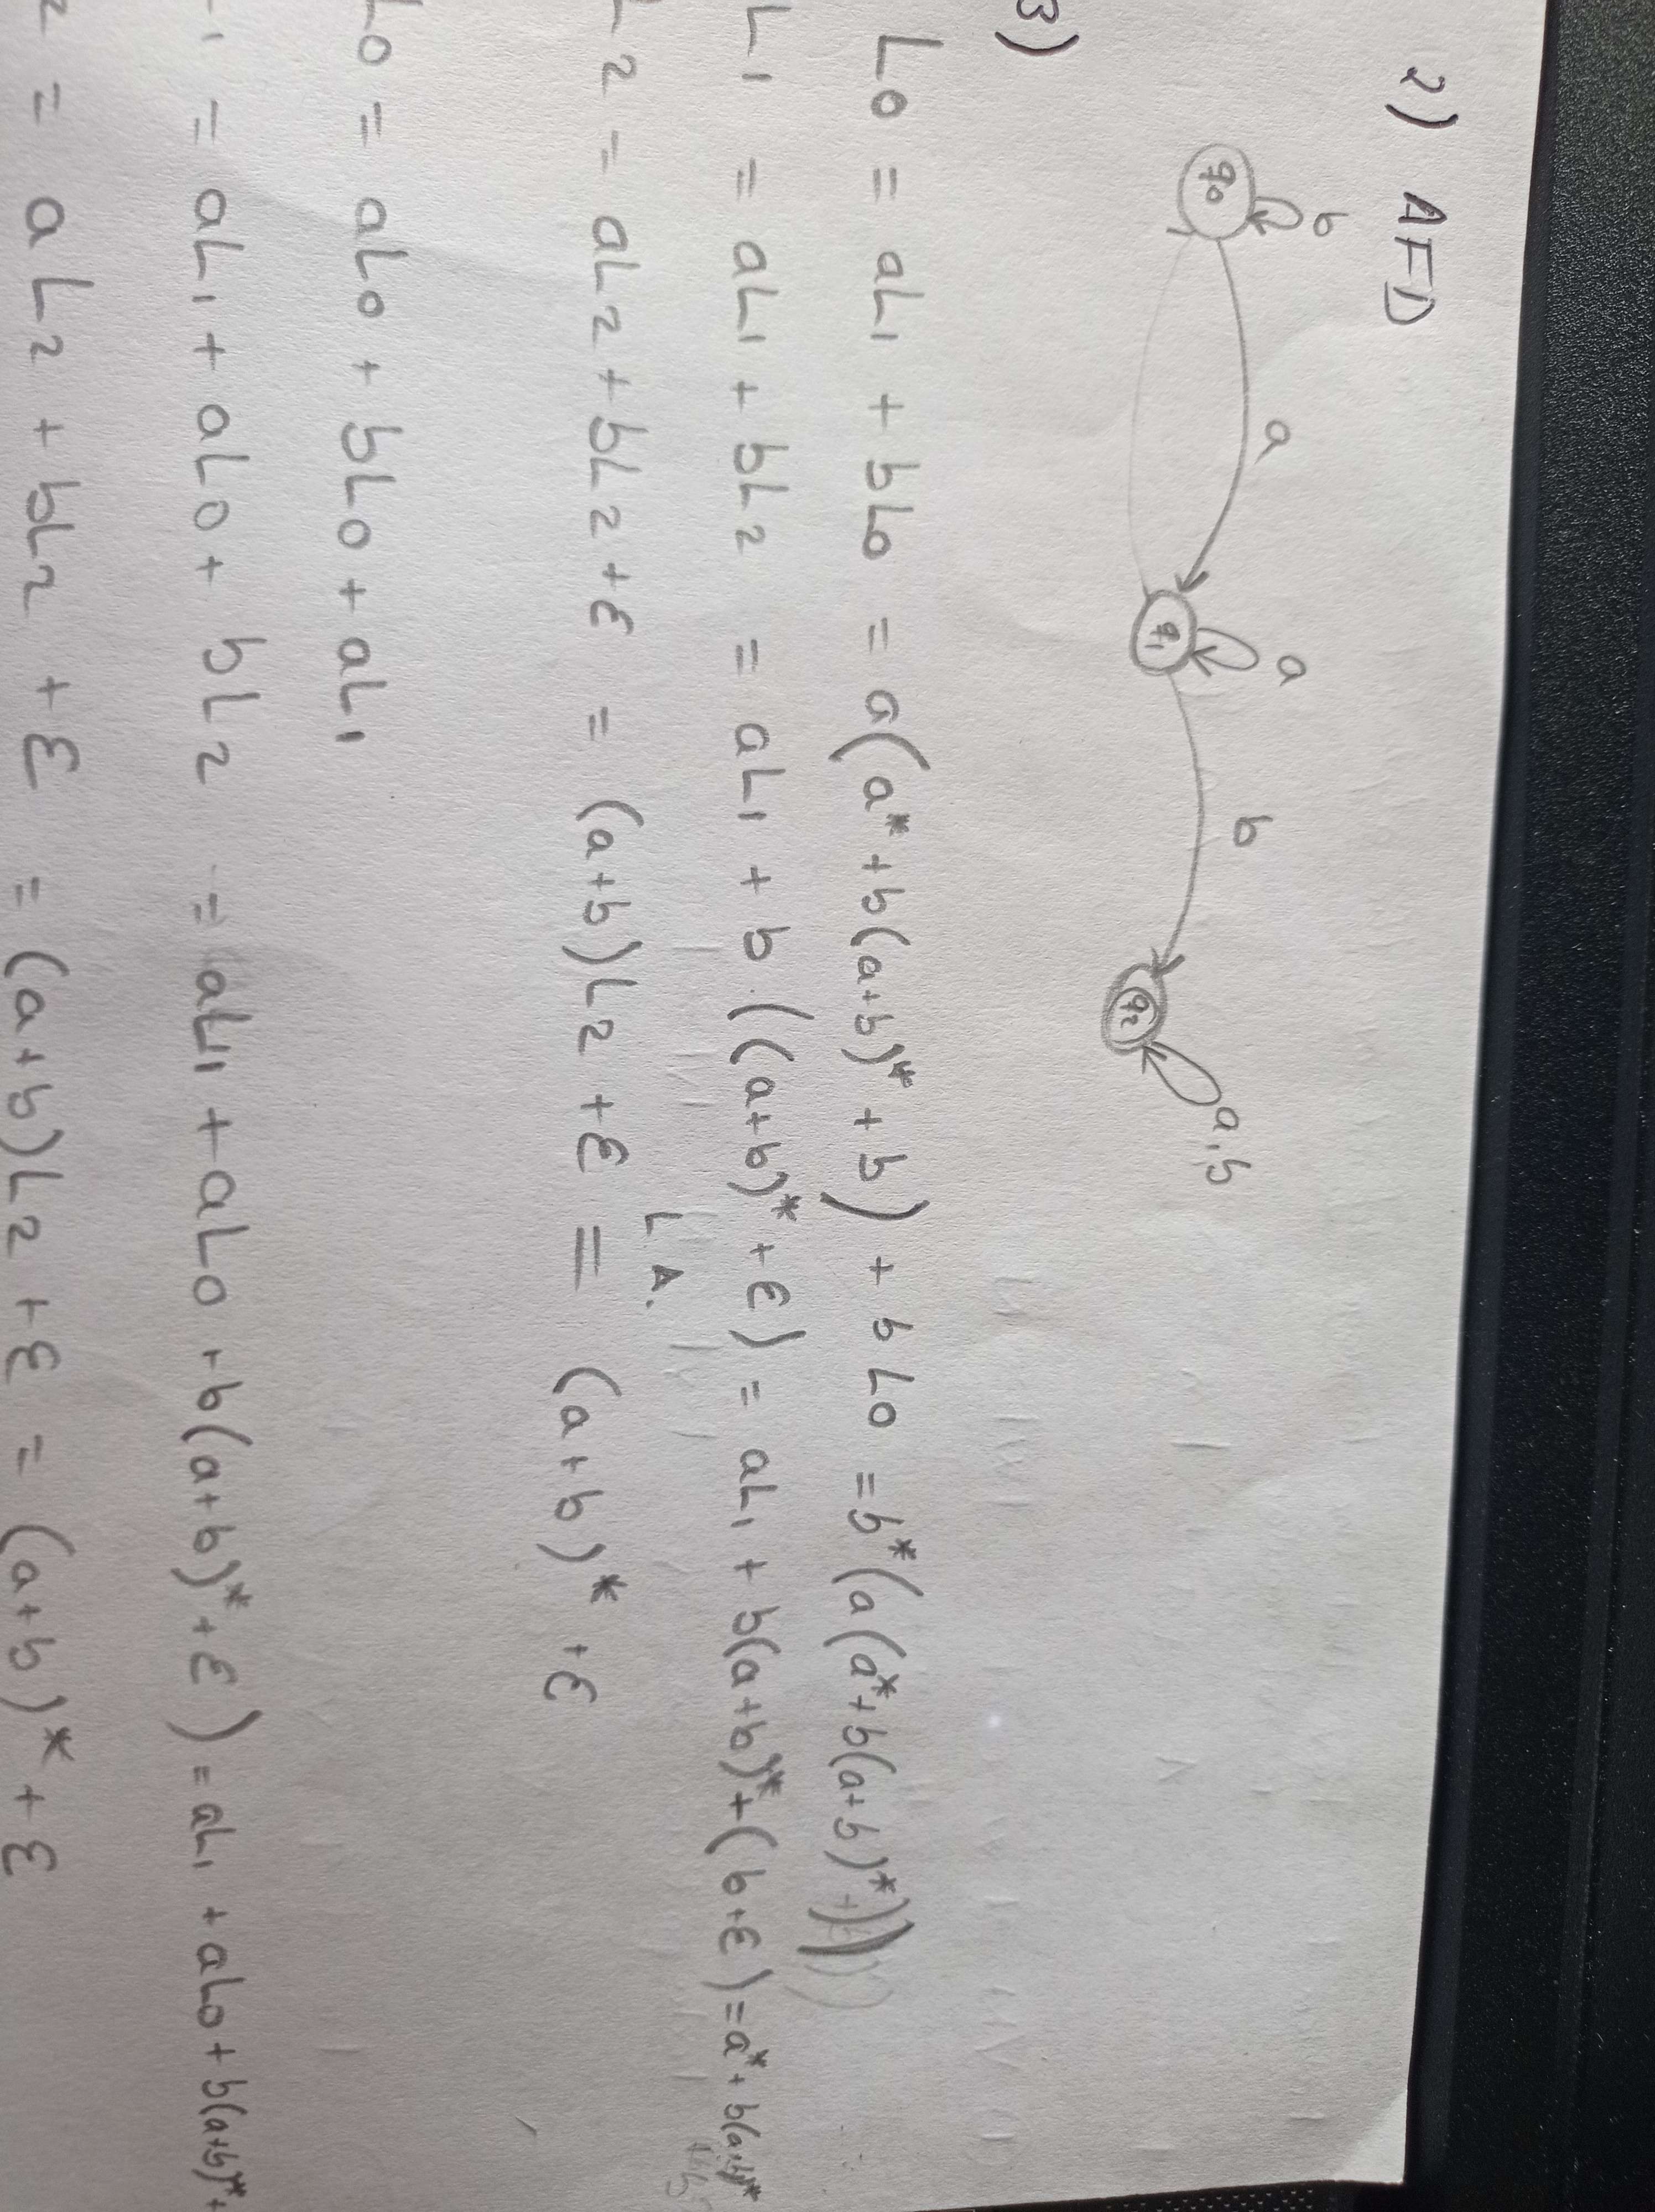 2) AFD
b a a b a,b
q0 q1 q2
3)
L0 = aL1 + bL0 = a(a* + b(a+b)* + b) + bL0 = b*(a(a*+b(a+b)*
L1 = aL1 + bL2 = aL1 + b.((a+b)* + ε) = aL1 + b(a+b)* + (b+ε) = a* + b(a+b)*
L.A.
2 = aL2 + bL2 + ε = (a+b)L2 + ε = (a+b)* + ε
L0 = aL0 + bL0 + aL1
1 = aL1 + aL0 + bL2 = aL1 + aL0 + b(a+b)* + ε) = aL1 + aL0 + b(a+b)* +
2 = aL2 + bL2 + ε = (a+b)L2 + ε = (a+b)* + ε